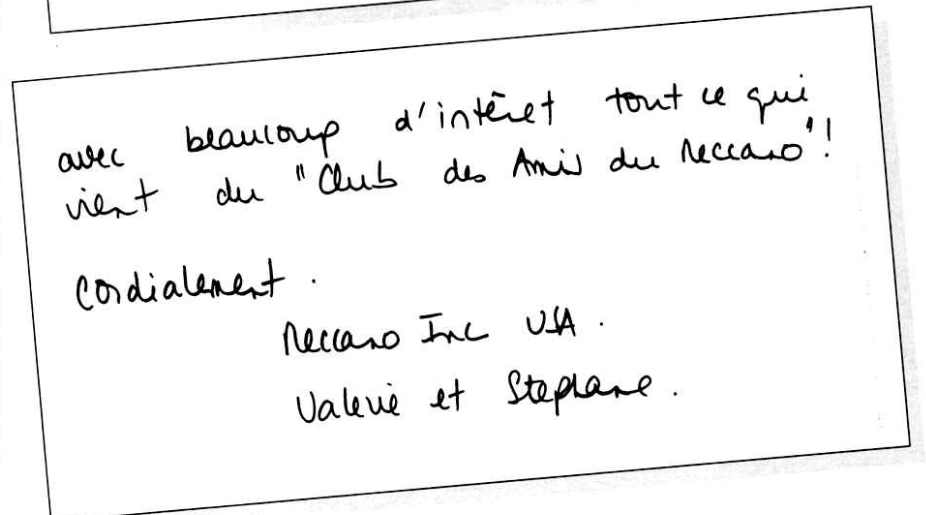 avec beaucoup d'intêret tout ce qui
vient du "Club des Amis du Meccano"!
Cordialement.
Meccano Inc USA.
Valerie et Stephane.